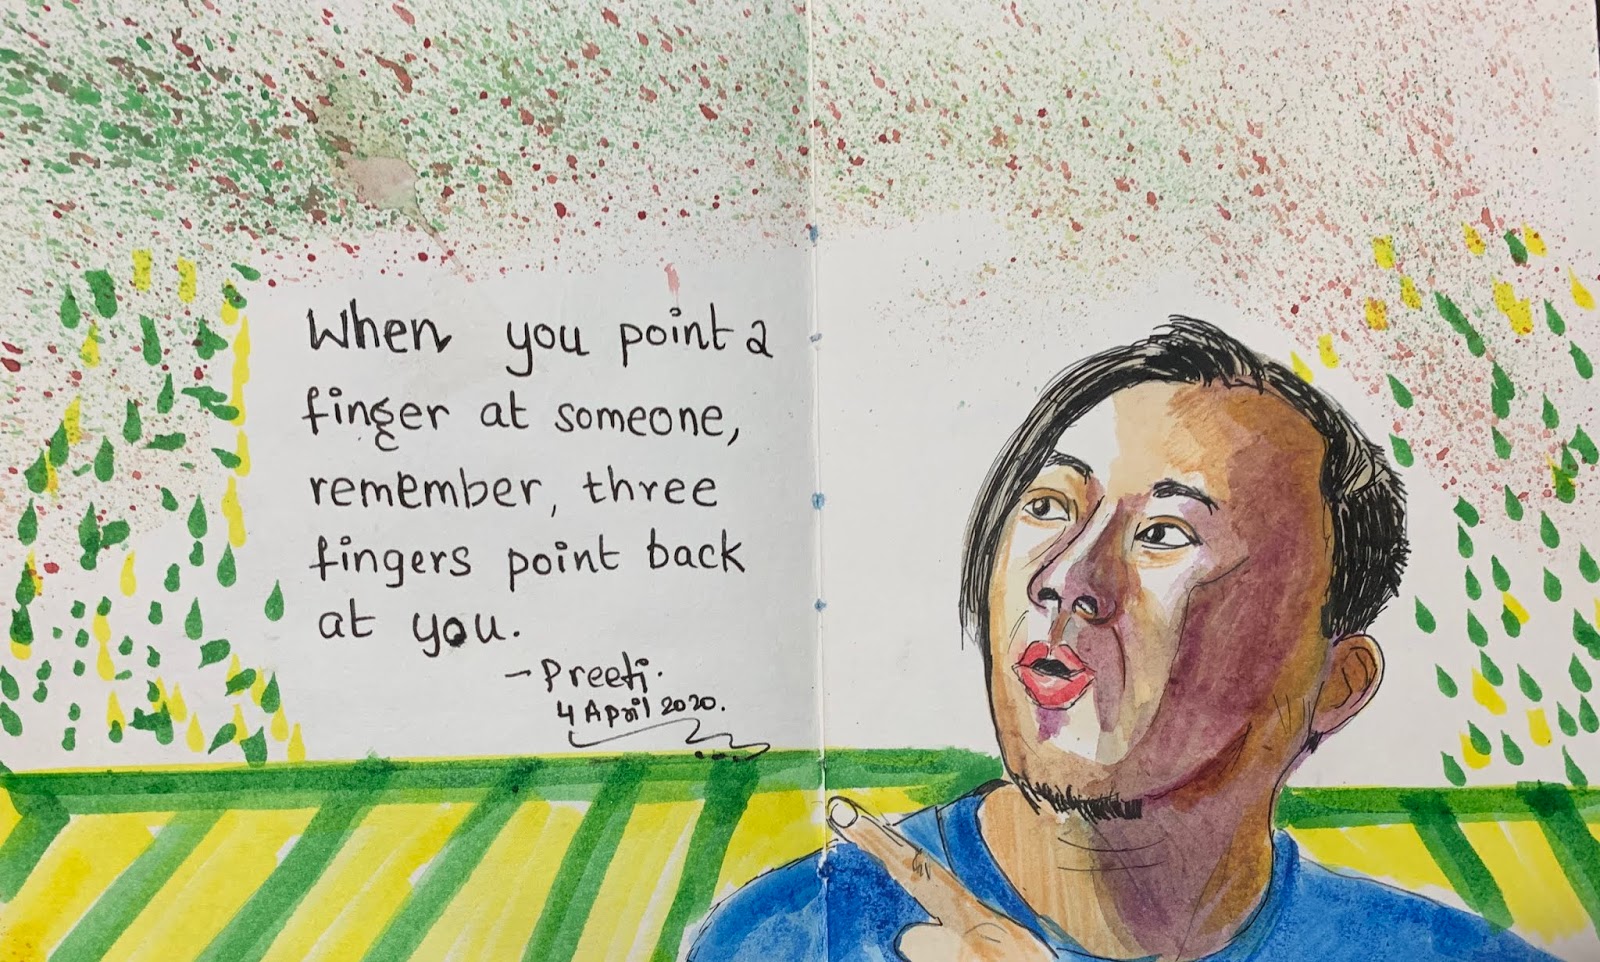 When you point a
finger at someone,
remember, three
fingers point back
at you.
- Preeti.
4 April 2020.